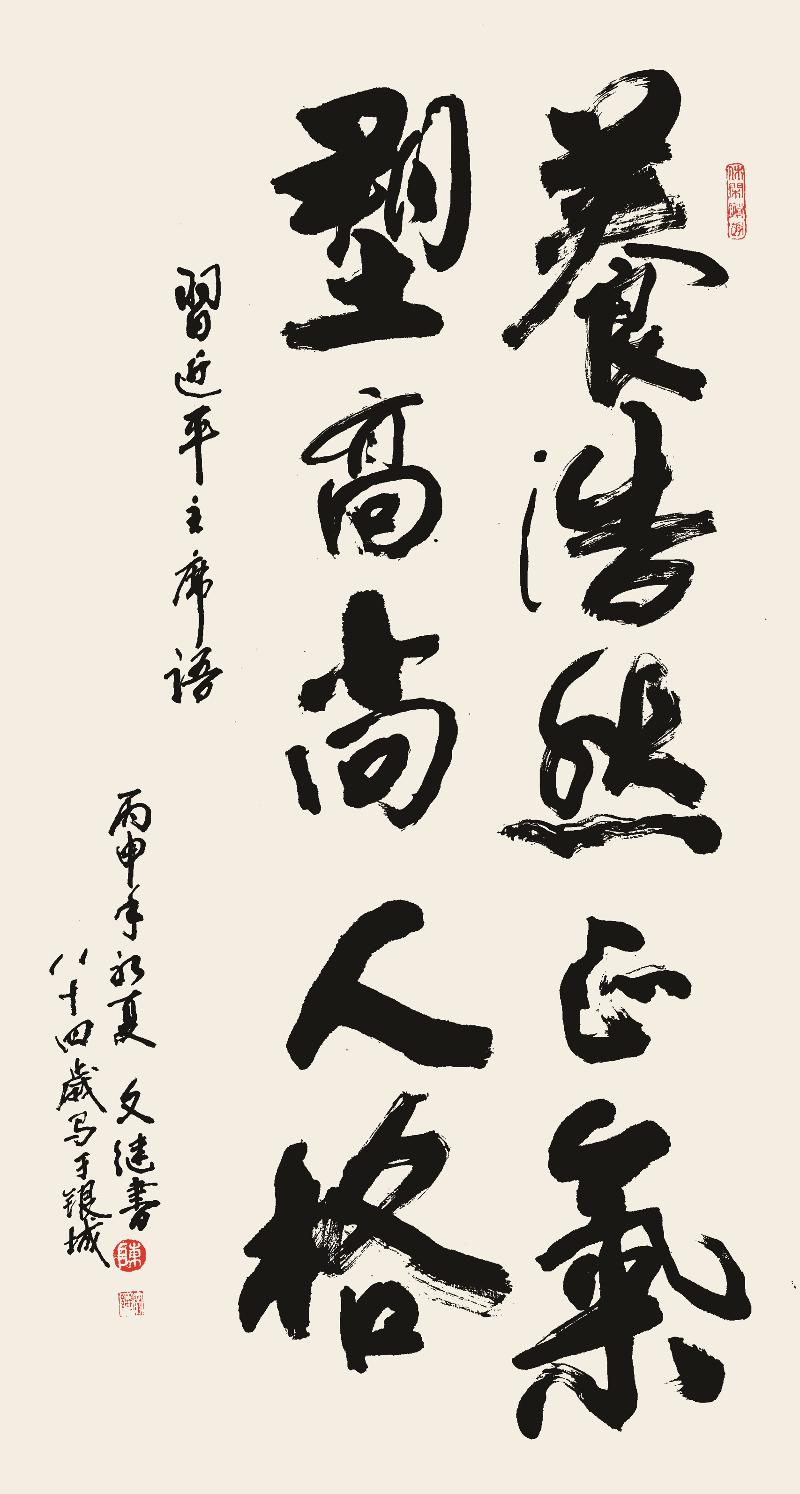 養浩然正氣
塑高尚人格
習近平主席语
丙申年初夏 文继書
八十四歲写于银城
陳